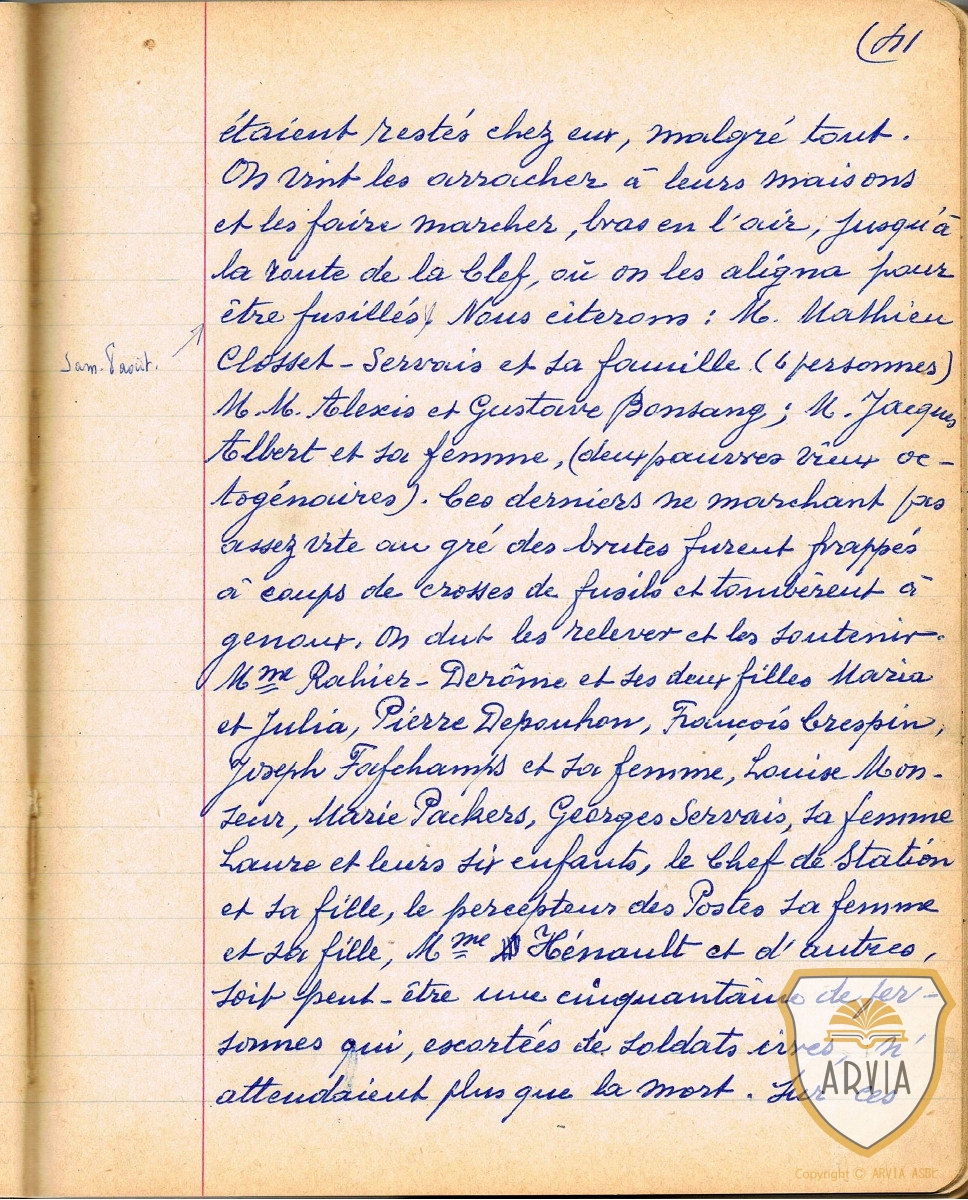 (41
étaient restés chez eux, malgré tout.
On vint les arracher à leurs maisons
et les faire marcher, bras en l'air, jusqu'à
la route de la Clef, où on les aligna pour
être fusillés. Nous citerons : M. Mathieu
Sam. 8 août.
Closset-Servais et sa famille (6 personnes)
M.M. Alexis et Gustave Bonsang ; M. Jacques
Albert et sa femme, (deux pauvres vieux oc-
togénaires). Ces derniers ne marchant pas
assez vite au gré des brutes furent frappés
à coups de crosses de fusils et tombèrent à
genoux. On dut les relever et les soutenir.
Mme Rahier-Derôme et ses deux filles Maria
et Julia, Pierre Depouhon, François Crespin,
Joseph Fafchamps et sa femme, Louise Mon-
seur, Marie Packers, Georges Servais, sa femme
Laure et leurs six enfants, le Chef de Station
et sa fille, le percepteur des Postes sa femme
et sa fille, Mme Hénault et d'autres,
soit peut-être une cinquantaine de per-
sonnes qui, escortées de soldats ivres, n'
attendaient plus que la mort. Sur ces
ARVIA
Copyright © ARVIA ASBL